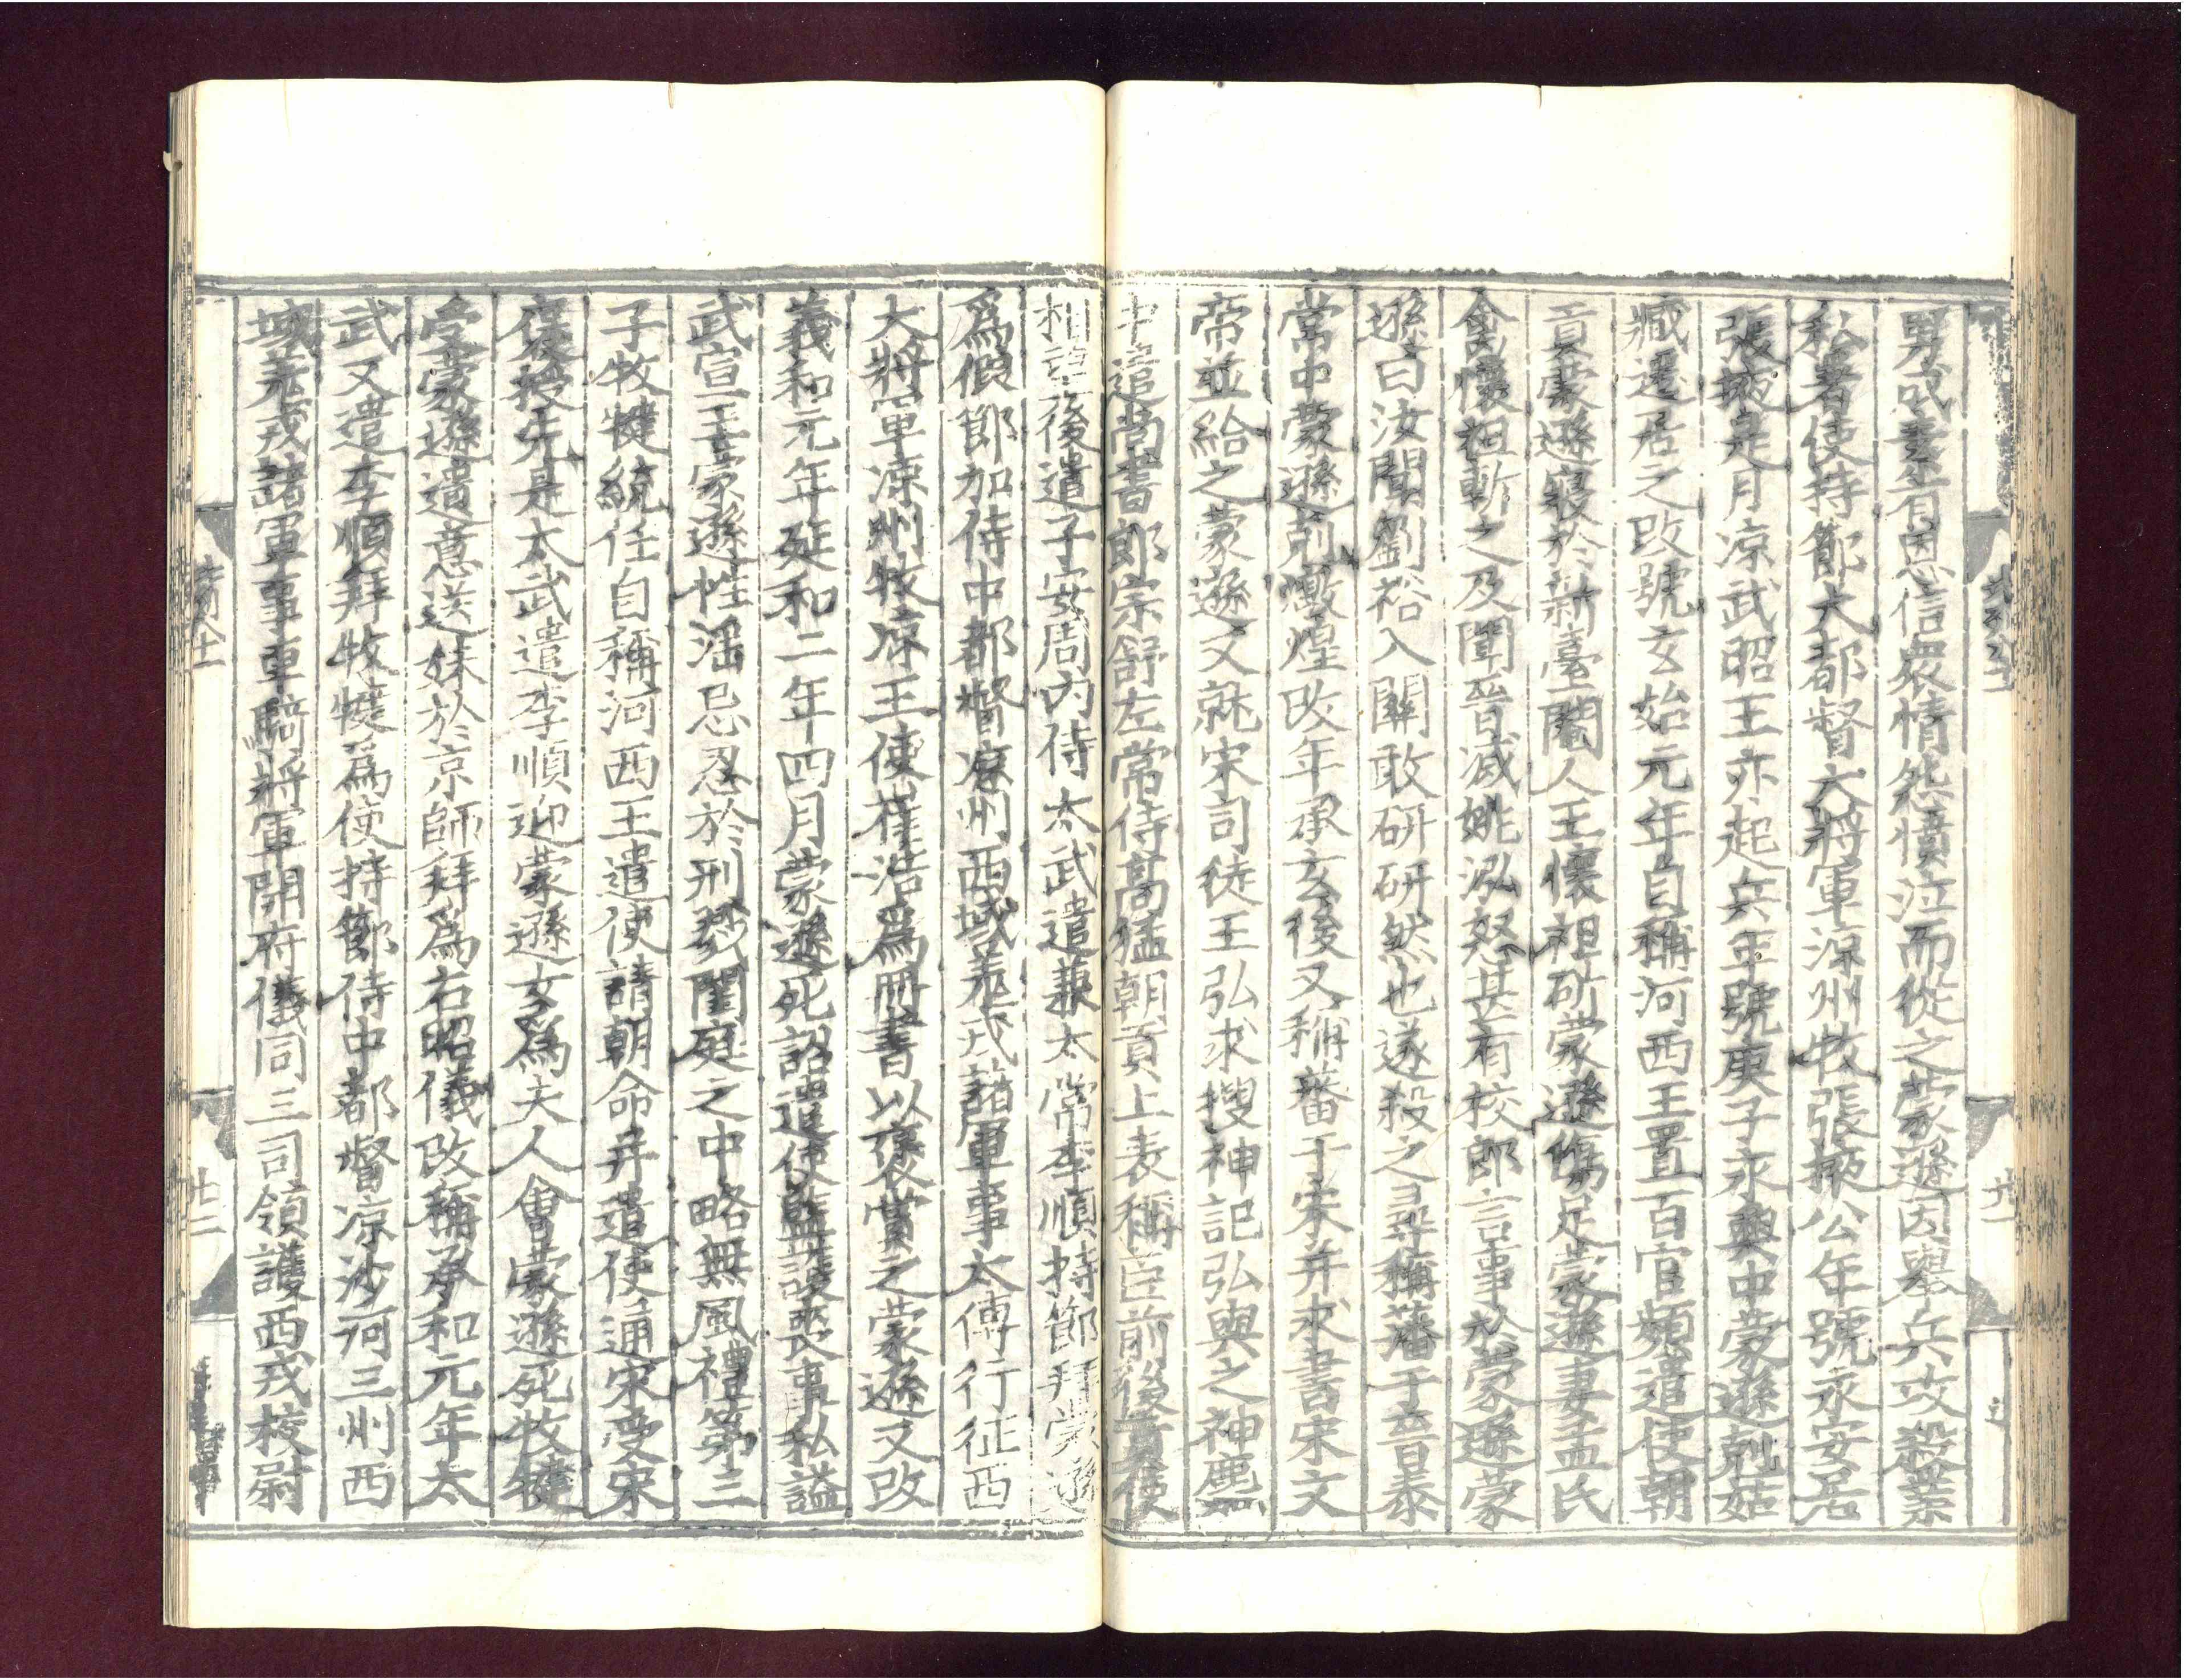 男成素有恩信衆情怨憤泣而從之蒙遜因舉兵攻殺業
私署使持節大都督大將軍涼州牧張掖公年號永安居
張掖是月凉武昭王亦起兵年號庚子永興中蒙遜剋姑
臧遷居之改號玄始元年自稱河西王置百官頻遣使朝
貢蒙遜寢於新臺閹人王懷祖斫蒙遜傷足蒙遜妻孟氏
禽懷祖斬之及聞晉滅姚泓怒甚有校郎言事於蒙遜蒙
遜曰汝聞劉裕入關敢研研然也遂殺之尋稱藩于晉泰
常中蒙遜剋燉煌改年承玄後又稱蕃于宋并求書宋文
帝並給之蒙遜又就宋司徒王弘求搜神記弘與之神䴥
中遣尚書郎宗舒左常侍高猛朝貢上表稱臣前後貢使
相望後遣子安周內侍太武遣兼太常李順持節拜蒙遜
爲假節加侍中都督凉州西域羌戎諸軍事太傅行征西
大將軍涼州牧凉王使崔浩爲冊書以襃賞之蒙遜又改
義和元年延和二年四月蒙遜死詔遣使監護喪事私謚
武宣王蒙遜性滛忌忍於刑戮閨庭之中略無風禮第三
子牧犍統任自稱河西王遣使請朝命并遣使通宋受宋
襃授先是太武遣李順迎蒙遜女爲夫人會蒙遜死牧犍
受蒙遜遺意送妹於京師拜爲右昭儀改稱承和元年太
武又遣李順拜牧犍爲使持節侍中都督凉沙河三州西
域羌戎諸軍事車騎將軍開府儀同三司領護西戎校尉
廿二